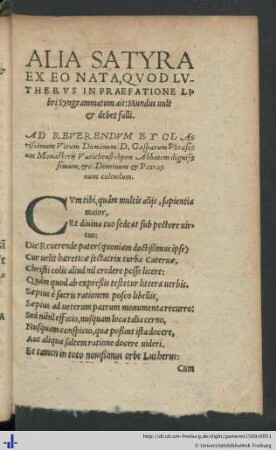 ALIA SATYRA
EX EO NATA, QVOD LV
THERVS IN PRAEFATIONE LI
bri Syngrammatum ait: Mundus uult
& debet falli.
AD REVERENDVM ET CLA
rissimum Virum Dominum D. Gasparum
um Monasterij Abbatem digniss
simum, &c. Dominum & Patro⸗
num colendum.
CVm tibi, quàm multis alijs, sapientia
maior,
Et diuina tuo sedeat sub pectore uir⸗
tus:
Dic Reuerende pater (quoniam doctissimus ipse)
Cur uelit hæreticæ sectatrix turba Cateruæ,
Christi colis aliud nil credere posse licere:
Quàm quod ab expreßis testetur littera uerbis.
Sæpius è sacris rationem posco libellis,
Sæpius ad ueterum patrum monumenta recurro:
Sed nihil efficio, nusquam loca talia cerno,
Nusquam conspicio, quæ poßint ista docere,
Aut aliqua saltem ratione docere uideri.
Et tamen in toto nouißimus orbe Lutherus:
Cum
http://dl.ub.uni-freiburg.de/diglit/gameren1569/0051
© Universitätsbibliothek Freiburg